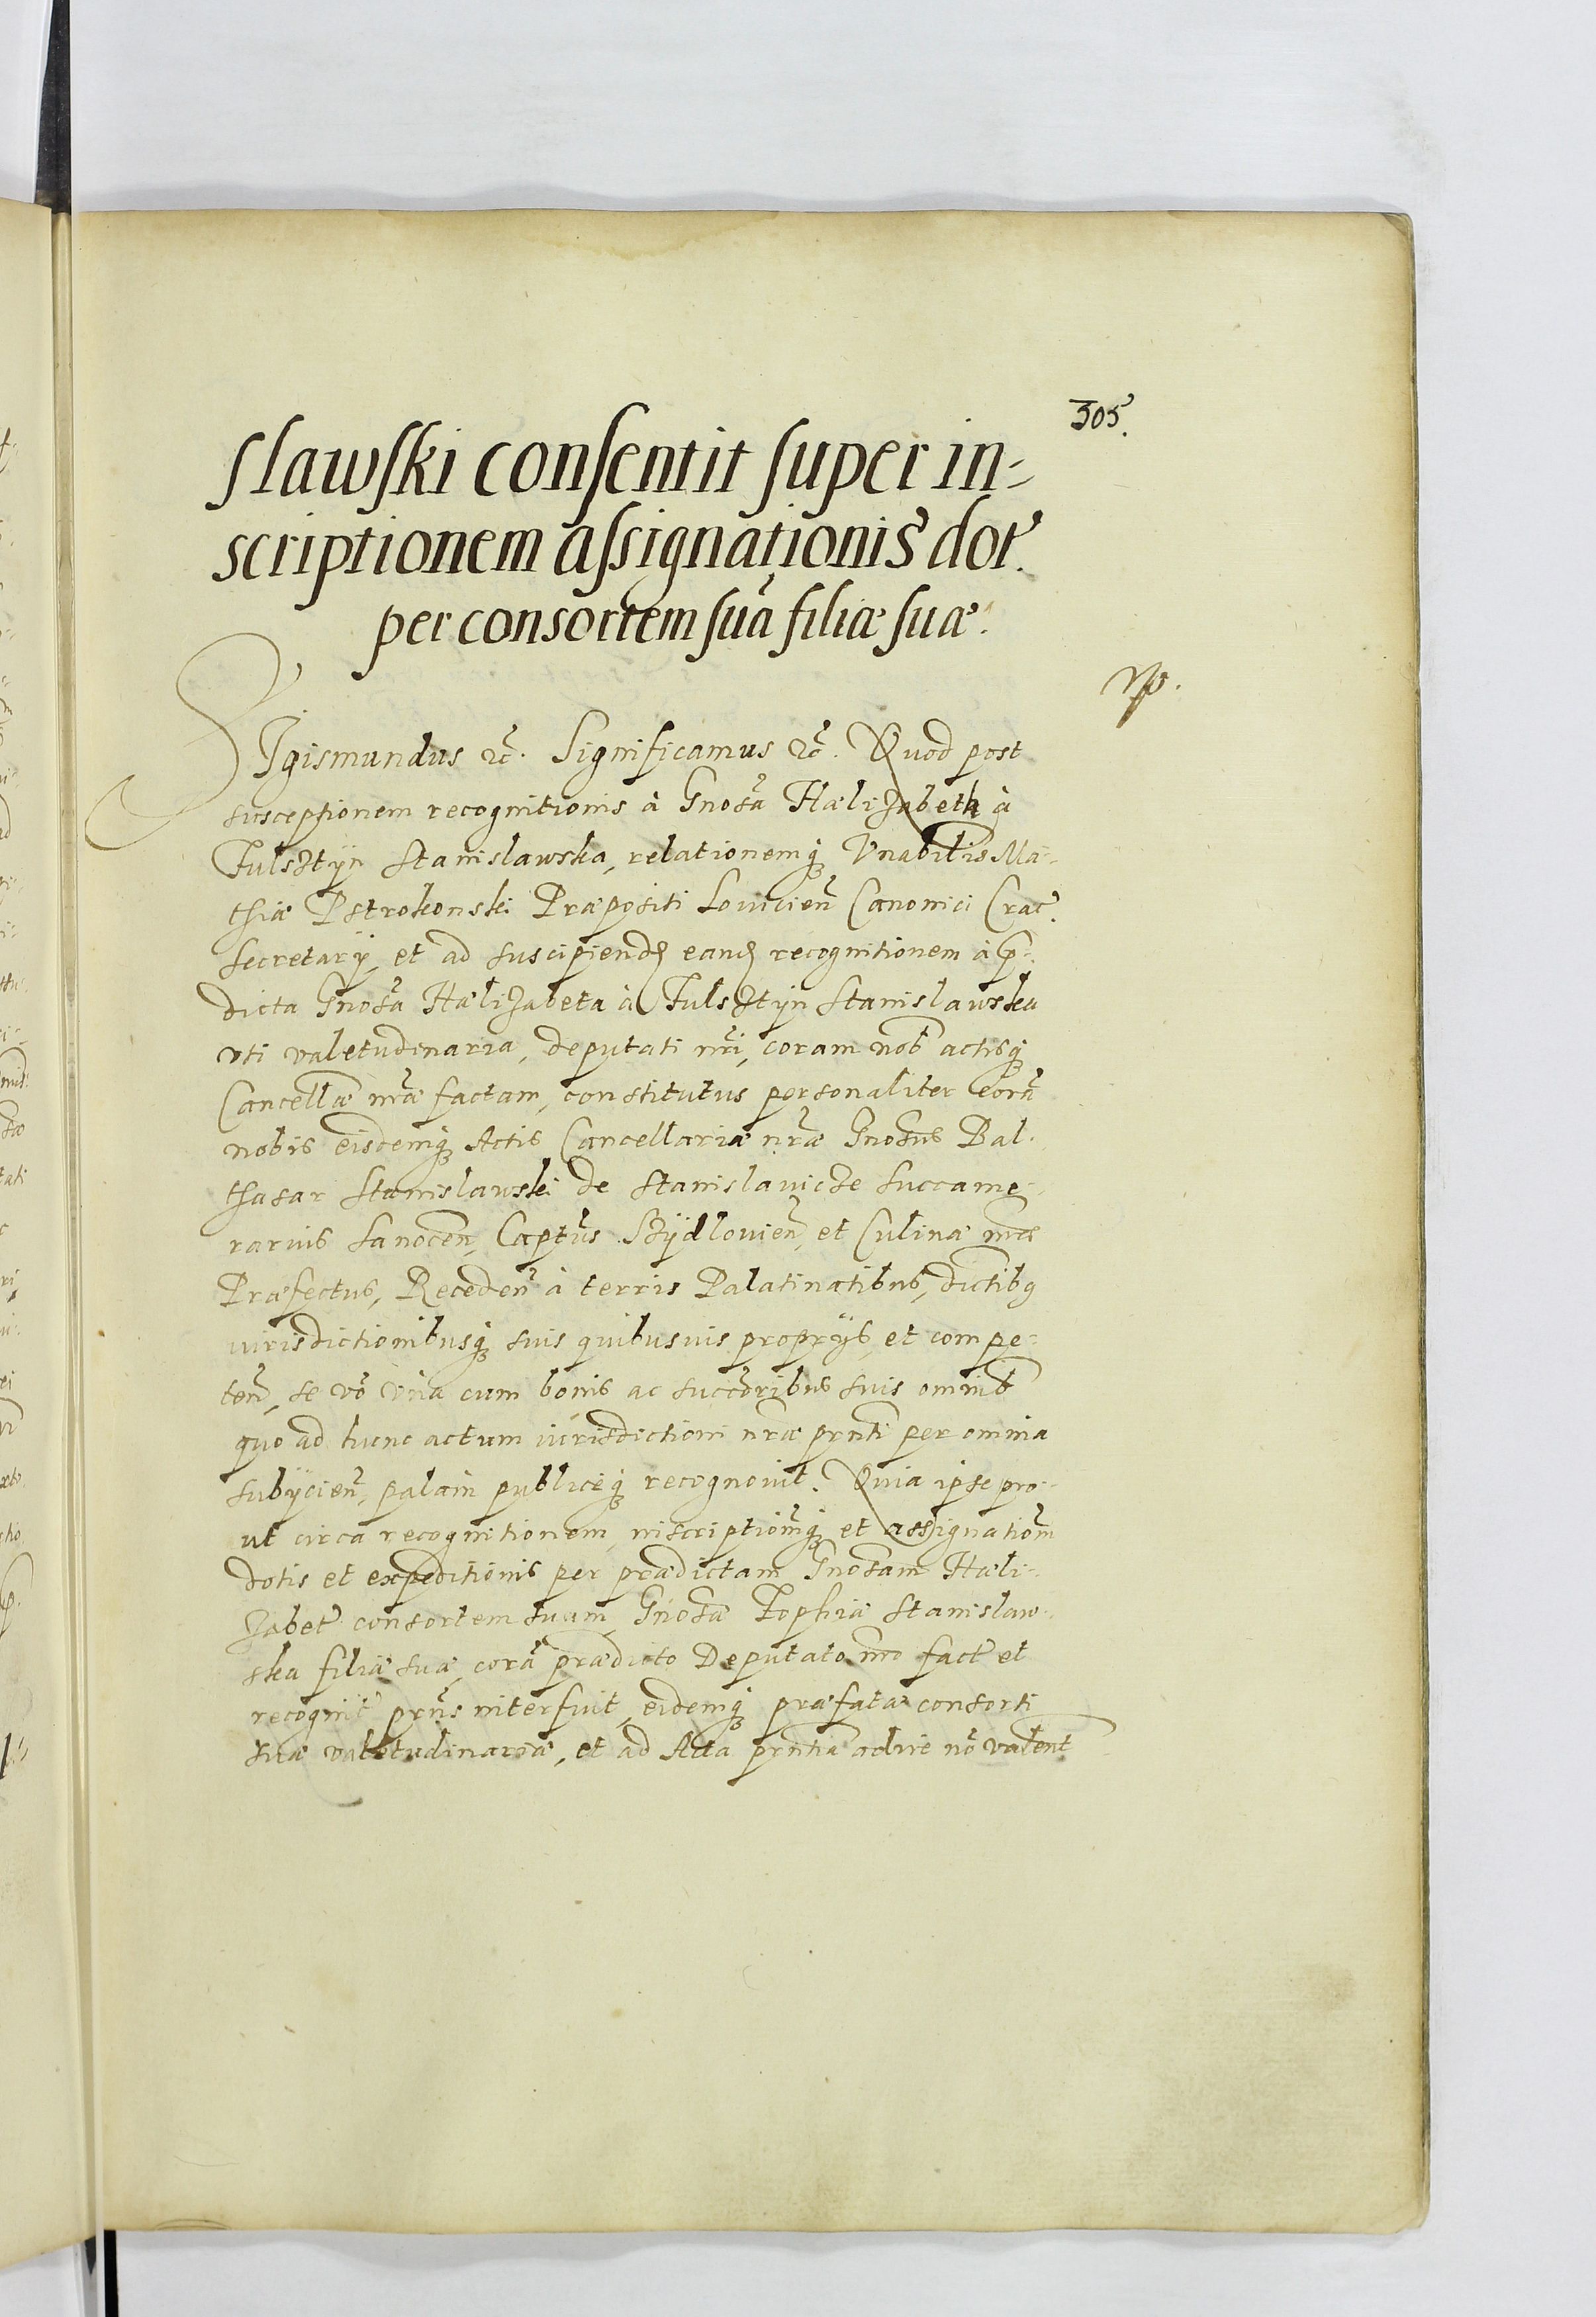 305.
slawski consentit super in-
scriptionem assignationis dot.
per consortem suã filiæ suæ.
Sigismundus etc. Significamus etc. Quod post
susceptionem recognitionis à Gnosa Hælizabeth à
Fulsztyn Stanislawska, relationemq; Vnabilis Ma-
thiæ Pstrokonski Præpositi Lovicien Canonici Crac.
Secretarij, et ad suscipiend eand recognitionem à p-
dicta Gnosa Hælizabeta à Fulsztyn Stanislawska
vti valetudinaria, deputati nri, coram nob actisq;
Cancellæ nræ factam, constitutus personaliter corã
nobis eisdemq; Actis Cancellariæ nræ Gnosus Bal-
thasar Stanislawski de Stanislavicze Succame-
rarius Sanocen, Captus Szydlovien, et Culinæ nræ
Præfectus, Receden à terris Palatinatibus, dictibq
iurisdictionibusq; suis quibusuis proprijs, et compe-
ten, se vo vna cum bonis ac succoribus suis omnib
quo ad hunc actum iurisdictioni nræ prnti per omnia
subijcien, palam publiceq; recognovit. Quia ipse pro-
ut circa recognitionem, inscriptionmq; et assignationm
dotis et expeditionis per prædictam Gnosam Hæli-
zabet consortem suam, Gnosæ Zophiæ Stanislaw-
ska filiæ suæ, corã prædicto Deputato nro fact et
recognit prns interfuit, eidemq; præfatæ consorti
suæ valetudinariæ, et ad Acta prntia adire nõ valent